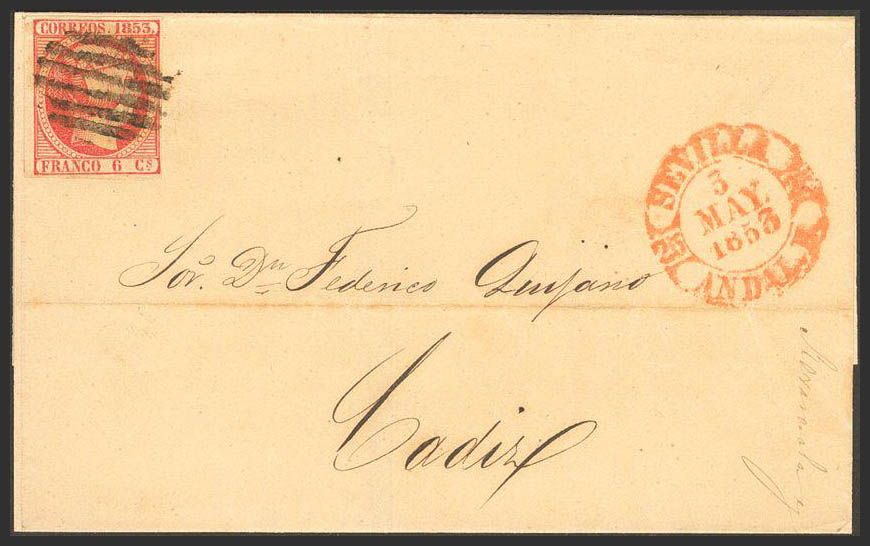 CORREOS. 1853.
FRANCO 6 Cs
SEVILLA
5
MAY.
1853
ANDAL.
Sor. Dn Federico Quijano
Cadiz